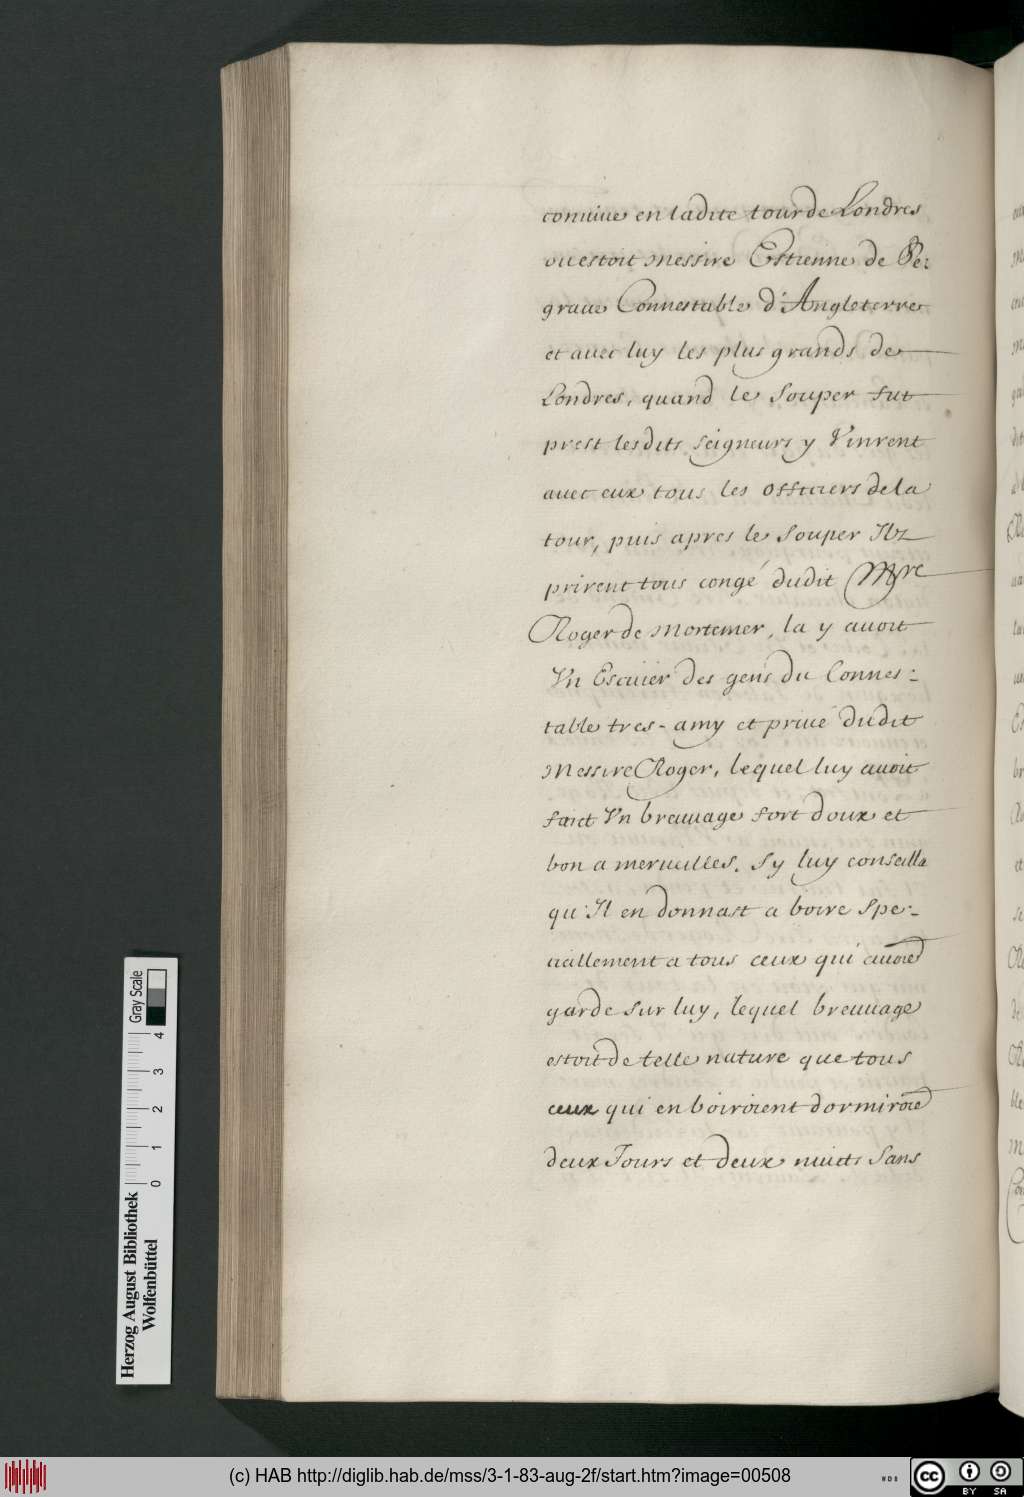 conuiue en ladite tour de Londres
ou estoit messire Estienne de Se:
graue Connestable d'Angleterre
et auec luy les plus grands de
Londres, quand le Souper fut
prest lesdits seigneurs y Vinrent
auec eux tous les officiers de la
tour, puis apres le Souper Ilz
prirent tous congé dudit Mre
Roger de Mortemer, la y auoit
Vn Escuier des gens du Connes:
table tres-amy et priué dudit
Messire Roger, lequel luy auoit
faict Vn breuuage fort doux et
bon a merueilles. Sy luy conseilla
qu'Il en donnast a boire Spe:
ciallement a tous ceux qui auoiēt
garde sur luy, lequel breuuage
estoit de telle nature que tous
ceux qui en boiroient dormiroiēt
deux Jours et deux nuicts Sans
Gray Scale
0 1 2 3 4
Herzog August Bibliothek
Wolfenbüttel
(c) HAB http://diglib.hab.de/mss/3-1-83-aug-2f/start.htm?image=00508
WDB
cc BY SA